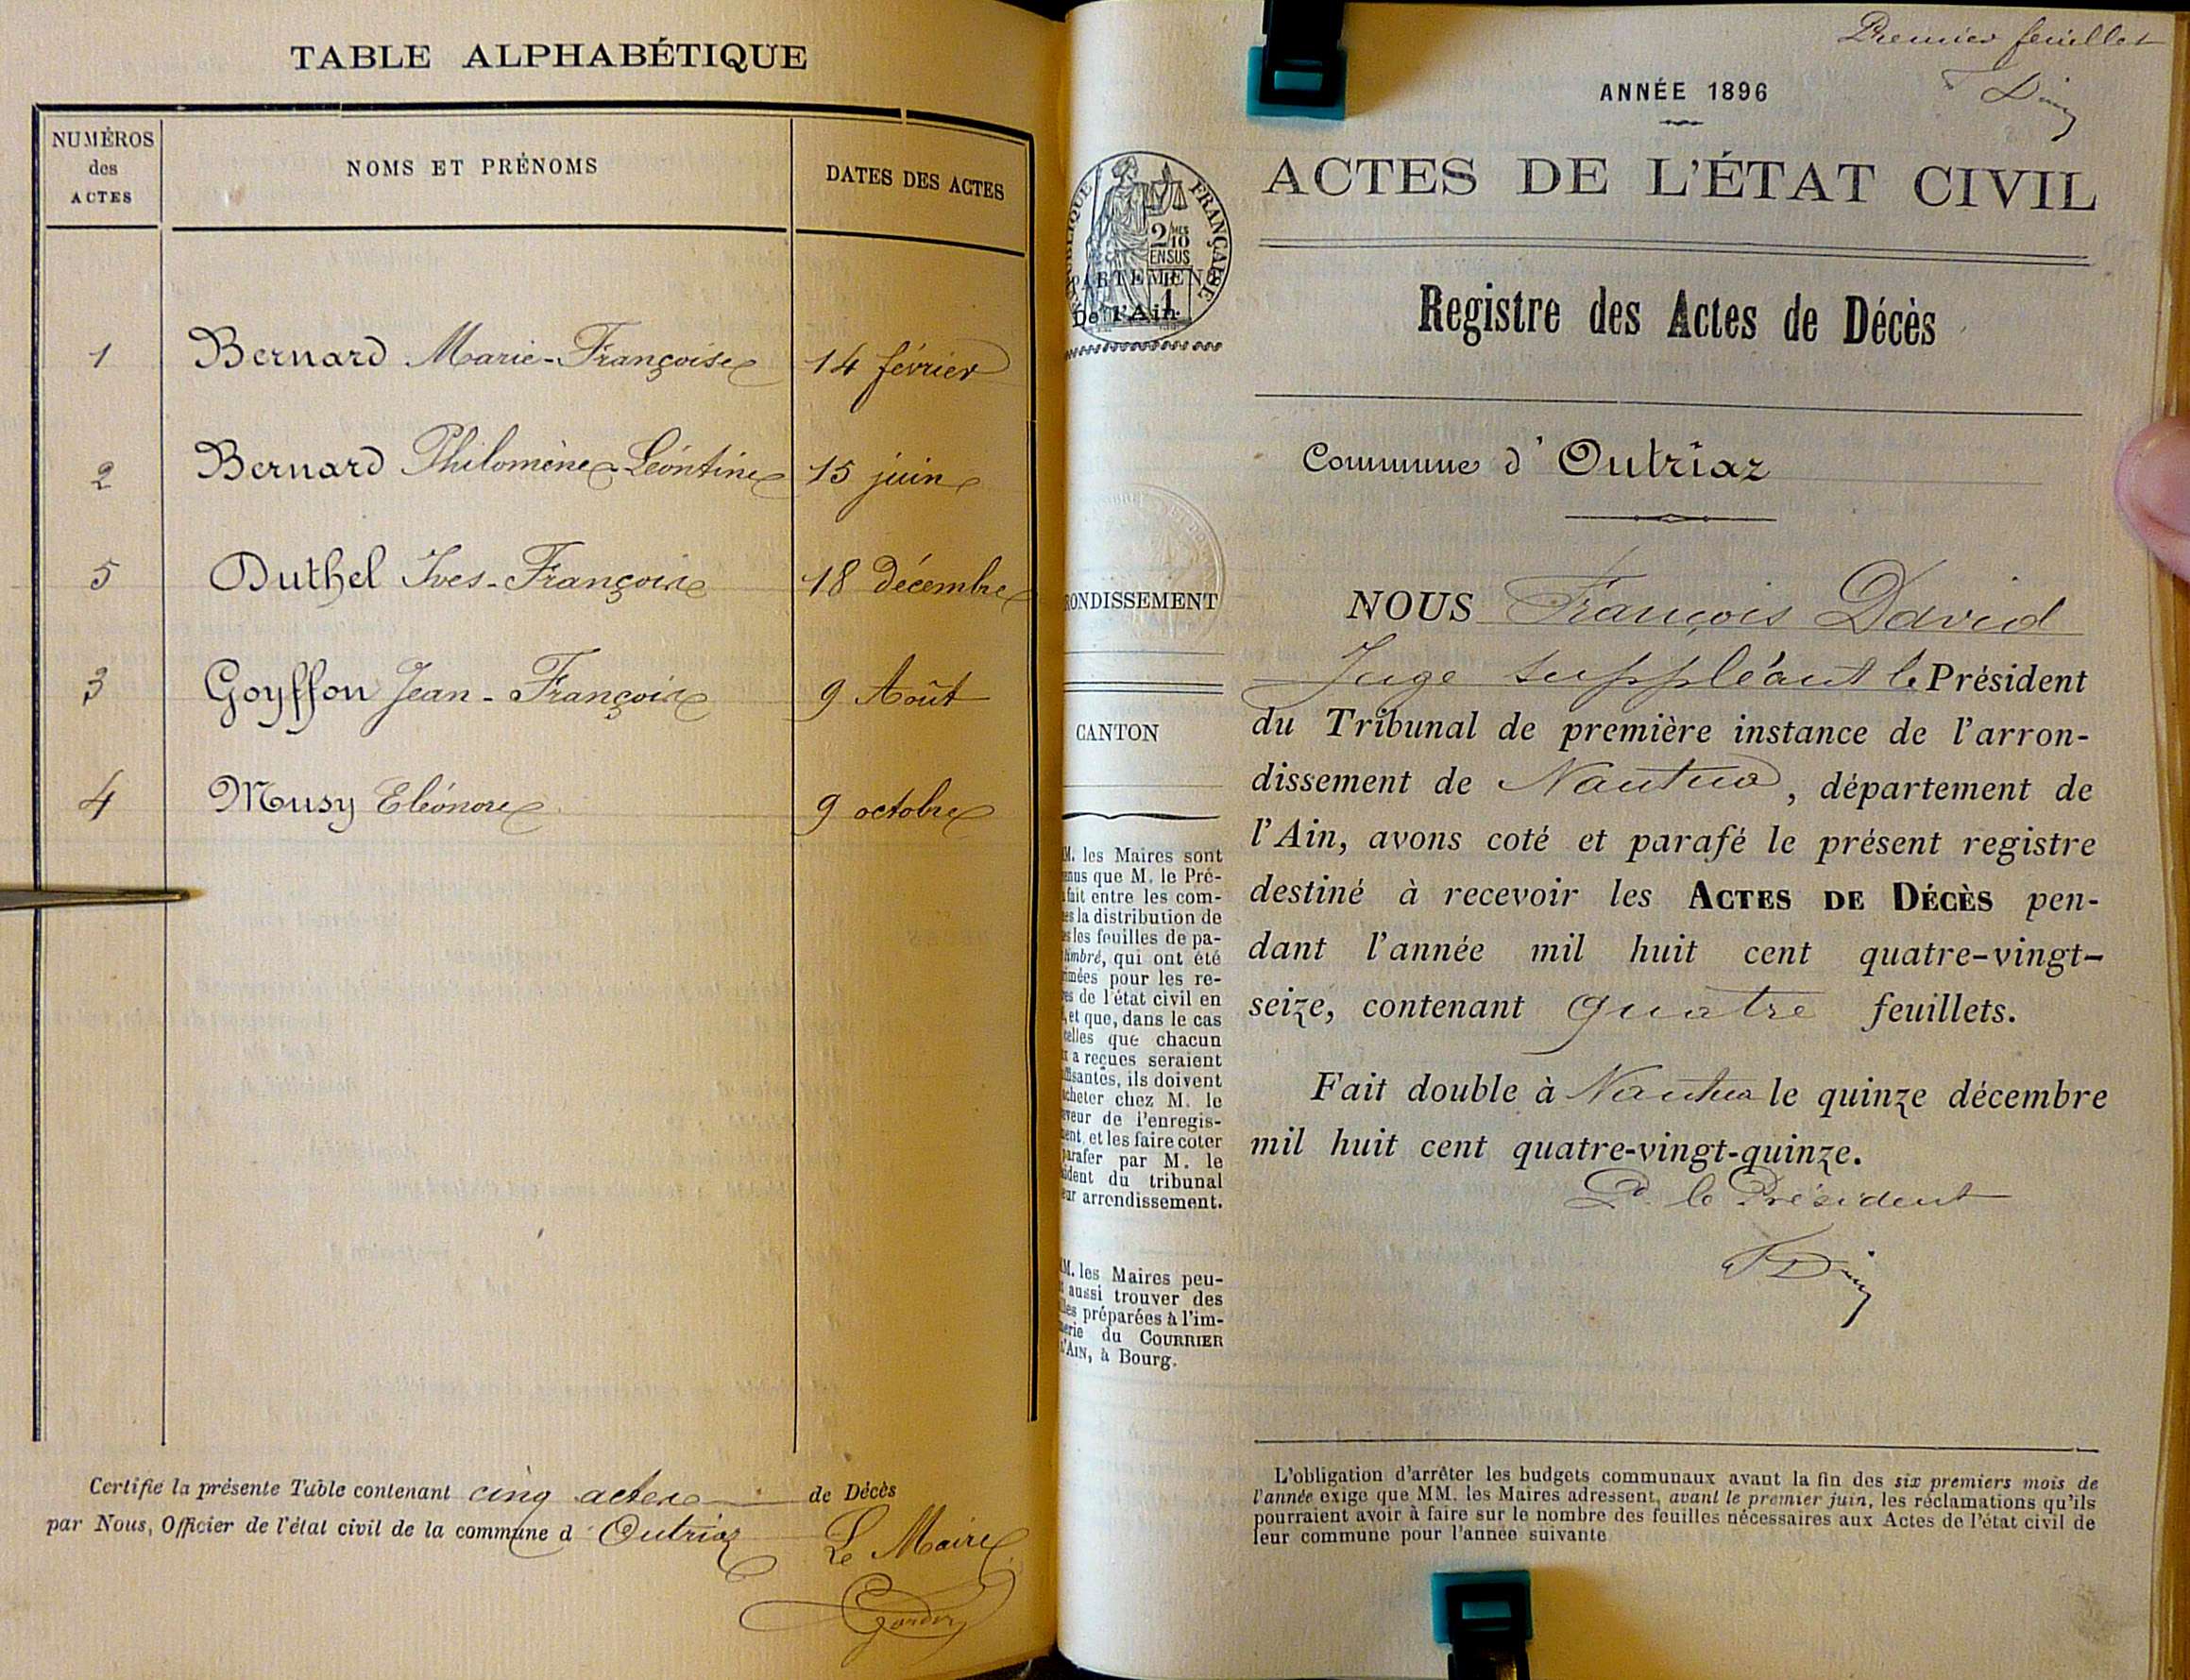 TABLE ALPHABÉTIQUE
NUMÉROS
des
ACTES
NOMS ET PRÉNOMS
DATES DES ACTES
1 Bernard Marie-Françoise 14 février
2 Bernard Philomène-Léontine 15 juin
5 Duthel Yves-François 18 décembre
3 Goyffon Jean-François 9 Août
4 Musy Eléonore 9 octobre
Certifié la présente Table contenant cinq actes de Décès
par Nous, Officier de l'état civil de la commune d'Outriaz
Le Maire
Premier feuillet
ANNÉE 1896
ACTES DE L'ÉTAT CIVIL
RÉPUBLIQUE FRANÇAISE
2/10
EN SUS
De l'Ain
Registre des Actes de Décès
Commune d'Outriaz
RONDISSEMENT
CANTON
NOUS François David
Juge suppléant le Président
du Tribunal de première instance de l'arron-
dissement de Nantua, département de
l'Ain, avons coté et parafé le présent registre
destiné à recevoir les ACTES DE DÉCÈS pen-
dant l'année mil huit cent quatre-vingt-
seize, contenant quatre feuillets.
Fait double à Nantua le quinze décembre
mil huit cent quatre-vingt-quinze.
P. le Président
M. les Maires sont
enus que M. le Pré-
fait entre les com-
es la distribution de
es les feuilles de pa-
timbré, qui ont été
rimées pour les re-
es de l'état civil en
, et que, dans le cas
celles que chacun
x a reçues seraient
ffisantes, ils doivent
acheter chez M. le
eveur de l'enregis-
ent, et les faire coter
parafer par M. le
sident du tribunal
eur arrondissement.
M. les Maires peu-
t aussi trouver des
lles préparées à l'im-
merie du COURRIER
l'AIN, à Bourg.
L'obligation d'arrêter les budgets communaux avant la fin des six premiers mois de
l'année exige que MM. les Maires adressent, avant le premier juin, les réclamations qu'ils
pourraient avoir à faire sur le nombre des feuilles nécessaires aux Actes de l'état civil de
leur commune pour l'année suivante